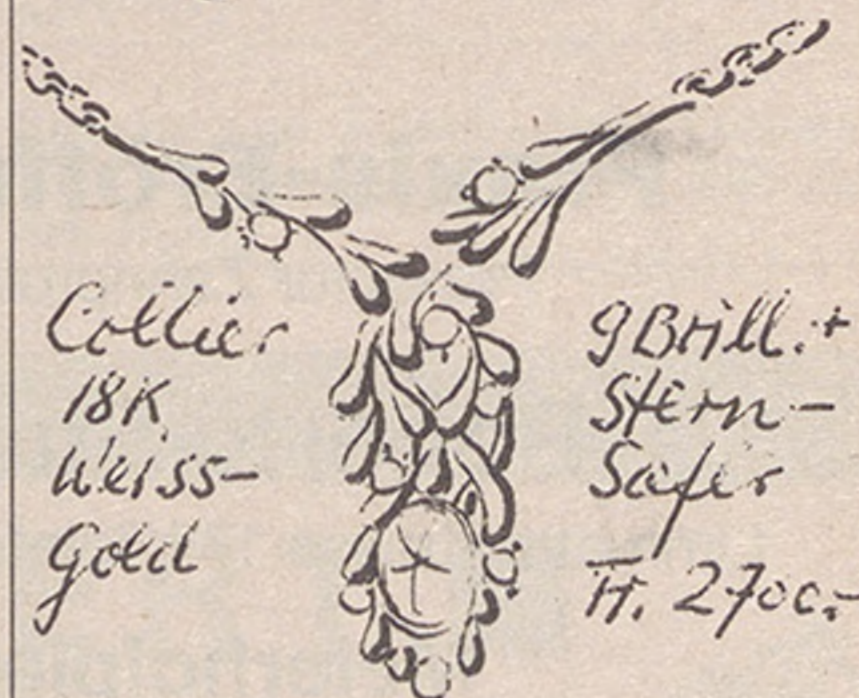 Collier
18K
Weiss-
Gold
9 Brill. +
Stern-
Safir
Fr. 2700.-